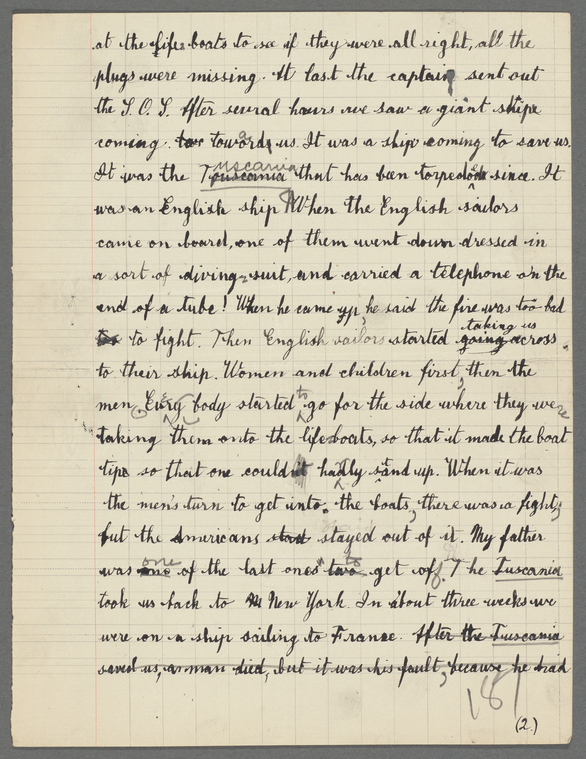 at the life boats to see if they were all right, all the
plugs were missing. At last the captain sent out
the S.O.S. After several hours we saw a giant ship
coming towards us. It was a ship coming to save us.
It was the Tuscania that has been torpedoed since. It
was an English ship. When the English sailors
came on board, one of them went down dressed in
a sort of diving-suit, and carried a telephone on the
end of a tube! When he came up, he said the fire was too bad
to fight. Then English sailors started going taking us across
to their ship. Women and children first, then the
men. Every body started to go for the side where they were
taking them onto the lifeboats, so that it made the boat
tip so that one couldn't hardly stand up. When it was
the men's turn to get into the boats, there was a fight,
but the Americans stayed out of it. My father
was one of the last ones to get off. The Tuscania
took us back to New York. In about three weeks we
were on a ship sailing to France. After the Tuscania
saved us, a man died, but it was his fault, because he had
181
(2.)